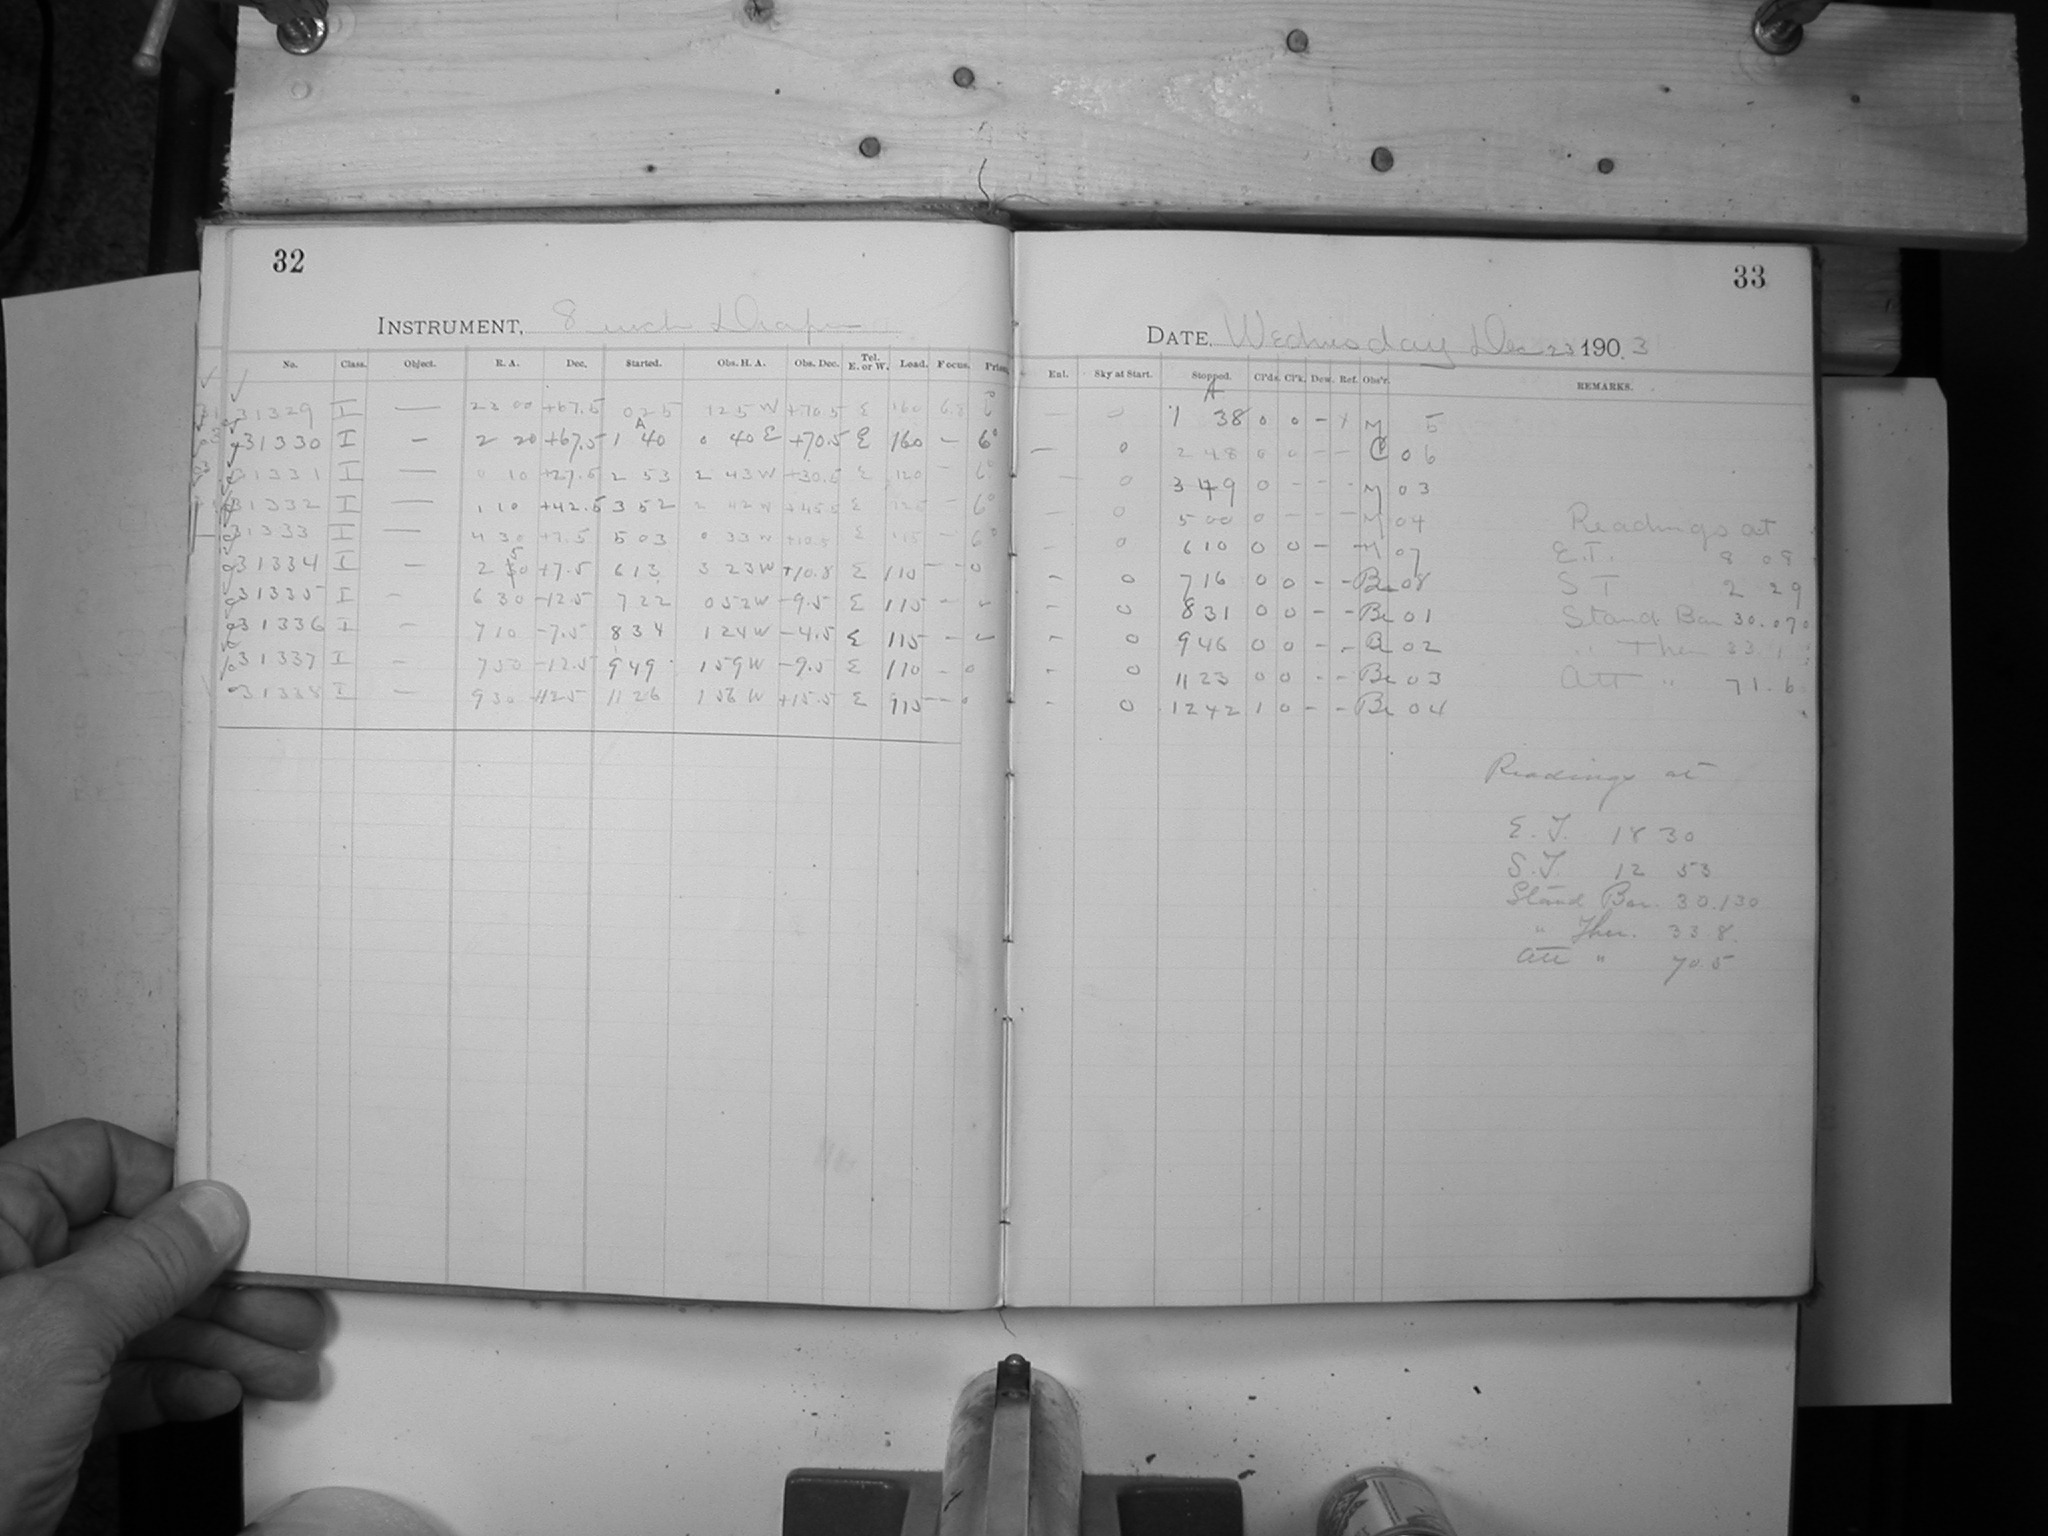 32
INSTRUMENT, 8 inch Draper
No. Class. Object. R. A. Dec. Started. Obs. H. A. Obs. Dec. Tel. E. or W. Load. Focus. Prism.
31329 I — 23 00 +67.5 0 25 1 25 W +70.5 E 160 6.8
31330 I — 2 20 +67.5 1 40 0 40 E +70.5 E 160 — 6°
31331 I — 0 10 +27.5 2 53 2 43 W +30.5 E 120 — 6°
31332 I — 1 10 +42.5 3 52 2 42 W +45.5 E — 6°
31333 I — 4 30 +7.5 5 03 0 33 W +10.5 E 115 — 6°
31334 I — 2 50 +7.5 6 13 3 23 W +10.8 E 110 — 0
31335 I — 6 30 -12.5 7 22 0 52 W -9.5 E 115 -
31336 I — 7 10 -7.5 8 34 1 24 W -4.5 E 115 -
31337 I — 7 50 -12.5 9 49 1 59 W -9.5 E 110 - 0
31338 I — 9 30 +12.5 11 26 1 56 W +15.5 E 115 - 0
33
DATE, Wednesday Dec 23 190,3
Enl. Sky at Start. Stopped. Cl'ds. Cl'k. Dew. Ref. Obs'r. REMARKS.
A
— 0 1 38 0 0 - M 5
— 0 2 48 0 0 - - C 06
— 0 3 49 0 - - - M 03
— 0 5 00 0 - - - M 04
- 0 6 10 0 0 - - M 07
- 0 7 16 0 0 - - Be 08
- 0 8 31 0 0 - - Be 01
- 0 9 46 0 0 - - Be 02
- 0 11 23 0 0 - - Be 03
- 0 12 42 1 0 - - Be 04
Readings at
E.T. 8 08
S T 2 29
Stand Bar 30.070
" Ther 33.1
Att " 71.6
Readings at
E. T. 18 30
S. T. 12 53
Stand Bar. 30.130
" Ther. 33.8.
Att " 70.5